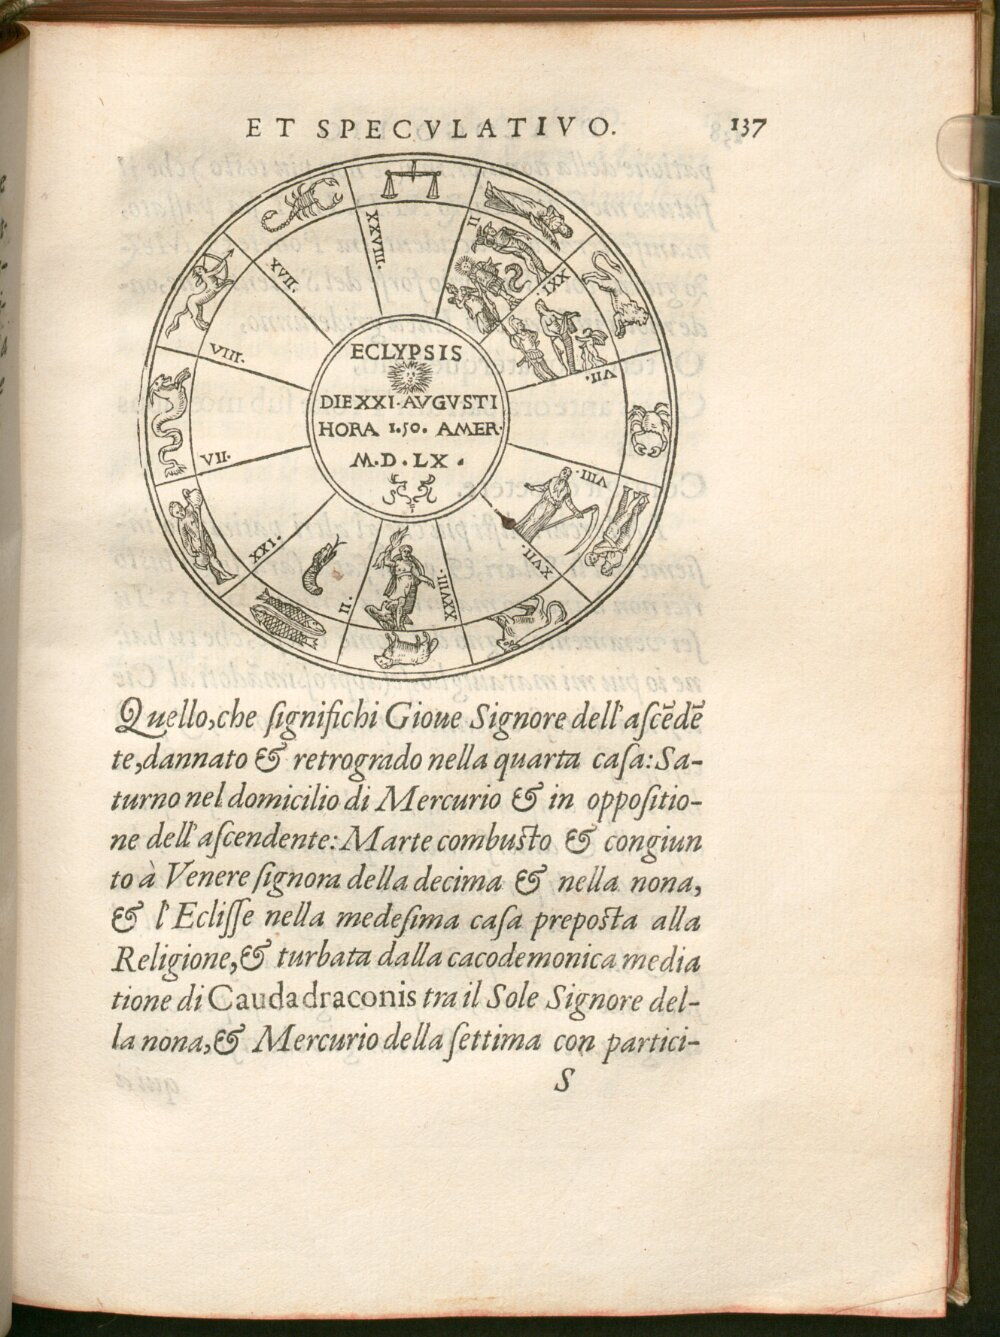 ET SPECVLATIVO. 137
XXVIII.
XVII.
VIII.
VII.
XXI.
II.
XXVIII.
XVII.
VIII.
VII.
XXI
II
ECLYPSIS
DIE XXI. AVGVSTI
HORA 1.50. AMER.
M.D.LX.
Quello, che ſignifichi Gioue Signore dell'aſcẽdẽ
te, dannato & retrogrado nella quarta caſa: Sa-
turno nel domicilio di Mercurio & in oppoſitio-
ne dell'aſcendente: Marte combuſto & congiun
to à Venere ſignora della decima & nella nona,
& l'Ecliſſe nella medeſima caſa prepoſta alla
Religione, & turbata dalla cacodemonica media
tione di Cauda draconis tra il Sole Signore del-
la nona, & Mercurio della ſettima con partici-
S